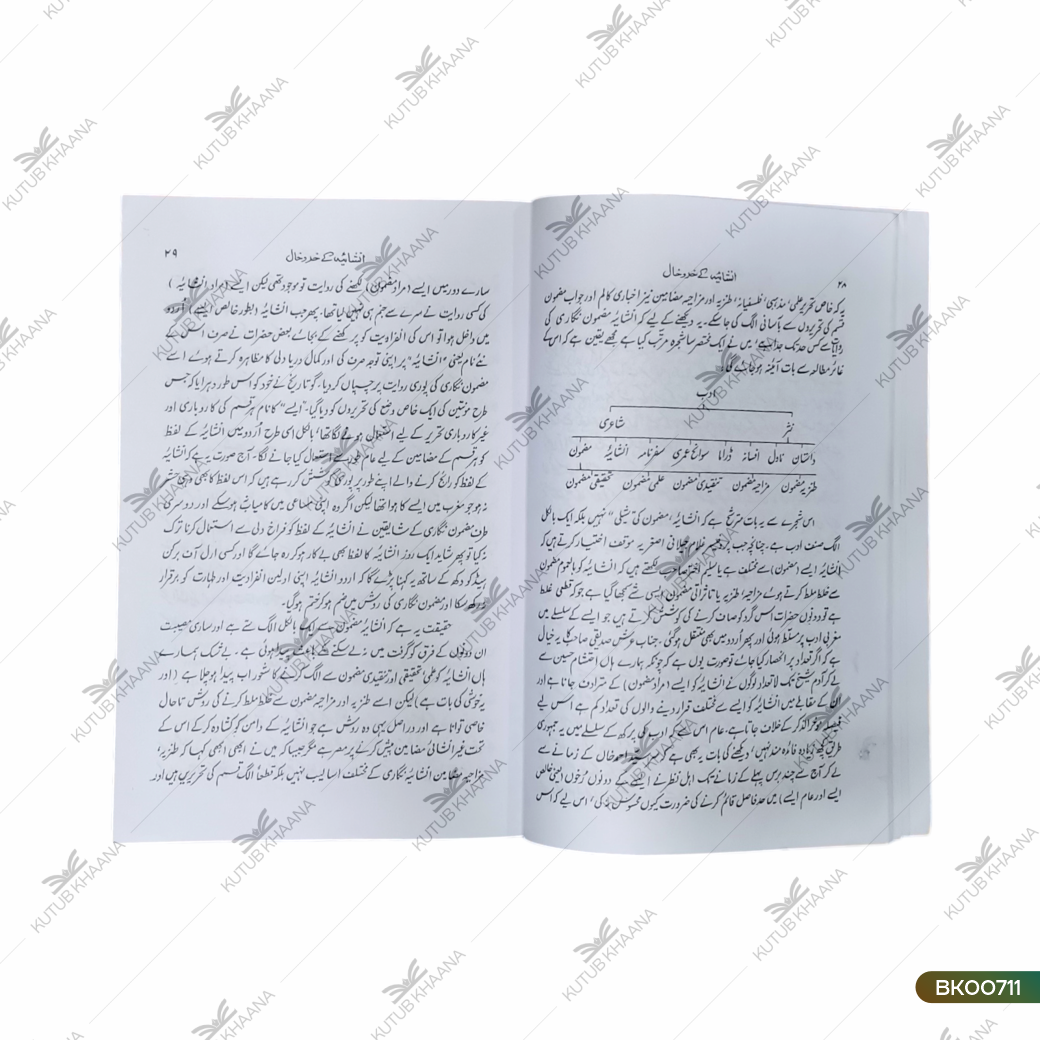 ۲۸
انشائیہ کے خدوخال
یہ کہ خاص تحریر علمی، مذہبی، فلسفیانہ، طنزیہ اور مزاحیہ مضامین نیز اخباری کالم اور جواب مضمون
قسم کی تحریروں سے بآسانی الگ کی جا سکے۔ یہ دیکھنے کے لیے کہ انشائیہ مضمون نگاری کی
روایت سے کس حد تک جدا ہے، میں نے ایک مختصر سا شجرہ مرتب کیا ہے مجھے یقین ہے کہ اس کے
غائر مطالعہ سے بات آئینہ ہو جائے گی۔
ادب
نثر شاعری
داستان ناول افسانہ ڈراما سوانح عمری سفرنامہ انشائیہ مضمون
طنزیہ مضمون مزاحیہ مضمون تنقیدی مضمون علمی مضمون تحقیقی مضمون
اس شجرے سے یہ بات مترشح ہے کہ انشائیہ، مضمون کی شیلی نہیں بلکہ ایک بالکل
الگ صنف ادب ہے۔ چنانچہ جب پروفیسر غلام جیلانی اصغر یہ موقف اختیار کرتے ہیں کہ
انشائیہ ایسے (مضمون) سے مختلف ہے یا سلیم اختر صاحب لکھتے ہیں کہ انشائیہ کو بالعموم مضمون
سے خلط ملط کرتے ہوئے مزاحیہ، طنزیہ یا تاثراتی مضمون ایسی شے سمجھا گیا ہے جو کہ قطعی غلط
ہے تو دونوں حضرات اس گرد کو صاف کرنے کی کوشش کرتے ہیں جو ایسے کے سلسلے میں
مغربی ادب پر مسلط ہوئی اور پھر اردو میں بھی منتقل ہو گئی۔ جناب عرش صدیقی صاحب کا یہ خیال
ہے کہ اگر تعداد پر انحصار کیا جائے تو صورت یوں ہے کہ چونکہ ہمارے ہاں احتشام حسین سے
لے کر آدم شیخ تک لاتعداد لوگوں نے انشائیہ کو ایسے (مراد مضمون) کے مترادف جانا ہے اور
ان کے مقابلے میں انشائیہ کو ایسے سے مختلف قرار دینے والوں کی تعداد کم ہے اس لیے
فیصلہ مؤخر الذکر کے خلاف جاتا ہے۔ عام اس سے کہ ادب کی پرکھ کے سلسلے میں یہ جمہوری
طریق کچھ زیادہ فائدہ مند نہیں، دیکھنے کی بات یہ بھی ہے کہ سر سید احمد خاں کے زمانے سے
لے کر آج سے چند برس پہلے کے زمانے تک اہل نظر نے ایسے کے دونوں مرخوں (یعنی خالص
ایسے اور عام ایسے) میں حد فاصل قائم کرنے کی ضرورت کیوں محسوس نہ کی، اس لیے کہ اس
انشائیہ کے خدوخال
۲۹
سارے دور میں ایسے (مراد مضمون) لکھنے کی روایت تو موجود تھی لیکن ایسے (مراد انشائیہ)
کی کسی روایت نے سرے سے جنم ہی نہیں لیا تھا۔ پھر جب انشائیہ (بطور خالص ایسے) اردو
میں داخل ہوا تو اس کی انفرادیت کو پرکھنے کے بجائے بعض حضرات نے صرف اس کے
نئے نام یعنی "انشائیہ" پر اپنی توجہ صرف کی اور کمال دریا دلی کا مظاہرہ کرتے ہوئے اسے
مضمون نگاری کی پوری روایت پر چسپاں کر دیا۔ گو تاریخ نے خود کو اس طور دہرایا کہ جس
طرح مونتین کی ایک خاص وضع کی تحریروں کو دیا گیا۔ "ایسے" کا نام ہر قسم کی کاروباری اور
غیر کاروباری تحریر کے لیے استعمال ہونے لگا تھا، بالکل اسی طرح اُردو میں انشائیہ کے لفظ
کو ہر قسم کے مضامین کے لیے عام طور سے استعمال کیا جانے لگا۔ آج صورت یہ ہے کہ انشائیہ
کے لفظ کو رائج کرنے والے اپنے طور پر پوری کوشش کر رہے ہیں کہ اس لفظ کا بھی وہی حشر
نہ ہو جو مغرب میں ایسے کا ہوا تھا لیکن اگر وہ اپنی مساعی میں کامیاب نہ ہو سکے اور دوسری
طرف مضمون نگاری کے شائقین نے انشائیہ کے لفظ کو فراخ دلی سے استعمال کرنا ترک
نہ کیا تو پھر شاید ایک روز انشائیہ کا لفظ بھی بے کار ہو کر رہ جائے گا اور کسی ارل آف برکن
ہیڈ کو دکھ کے ساتھ یہ کہنا پڑے گا کہ اردو انشائیہ اپنی اولین انفرادیت اور طہارت کو برقرار
نہ رکھ سکا اور مضمون نگاری کی روش میں ضم ہو کر ختم ہو گیا۔
حقیقت یہ ہے کہ انشائیہ مضمون سے ایک بالکل الگ شے ہے اور ساری مصیبت
ان دونوں کے فرق کو گرفت میں نہ لے سکنے کے باعث پیدا ہوئی ہے۔ بے شک ہمارے
ہاں انشائیہ کو علمی، تحقیقی اور تنقیدی مضمون سے الگ کرنے کا شعور اب پیدا ہو چلا ہے (اور
یہ خوشی کی بات ہے) لیکن اسے طنزیہ اور مزاحیہ مضمون سے خلط ملط کرنے کی روش تاحال
خاصی توانا ہے اور دراصل یہی وہ روش ہے جو انشائیہ کے دامن کو کشادہ کر کے اس کے
تحت غیر انشائی مضامین پیش کرنے پر مصر ہے مگر جیسا کہ میں نے ابھی ابھی کہا کہ طنزیہ،
مزاحیہ مضامین انشائیہ نگاری کے مختلف اسالیب نہیں بلکہ قطعاً الگ قسم کی تحریریں ہیں اور
BK00711